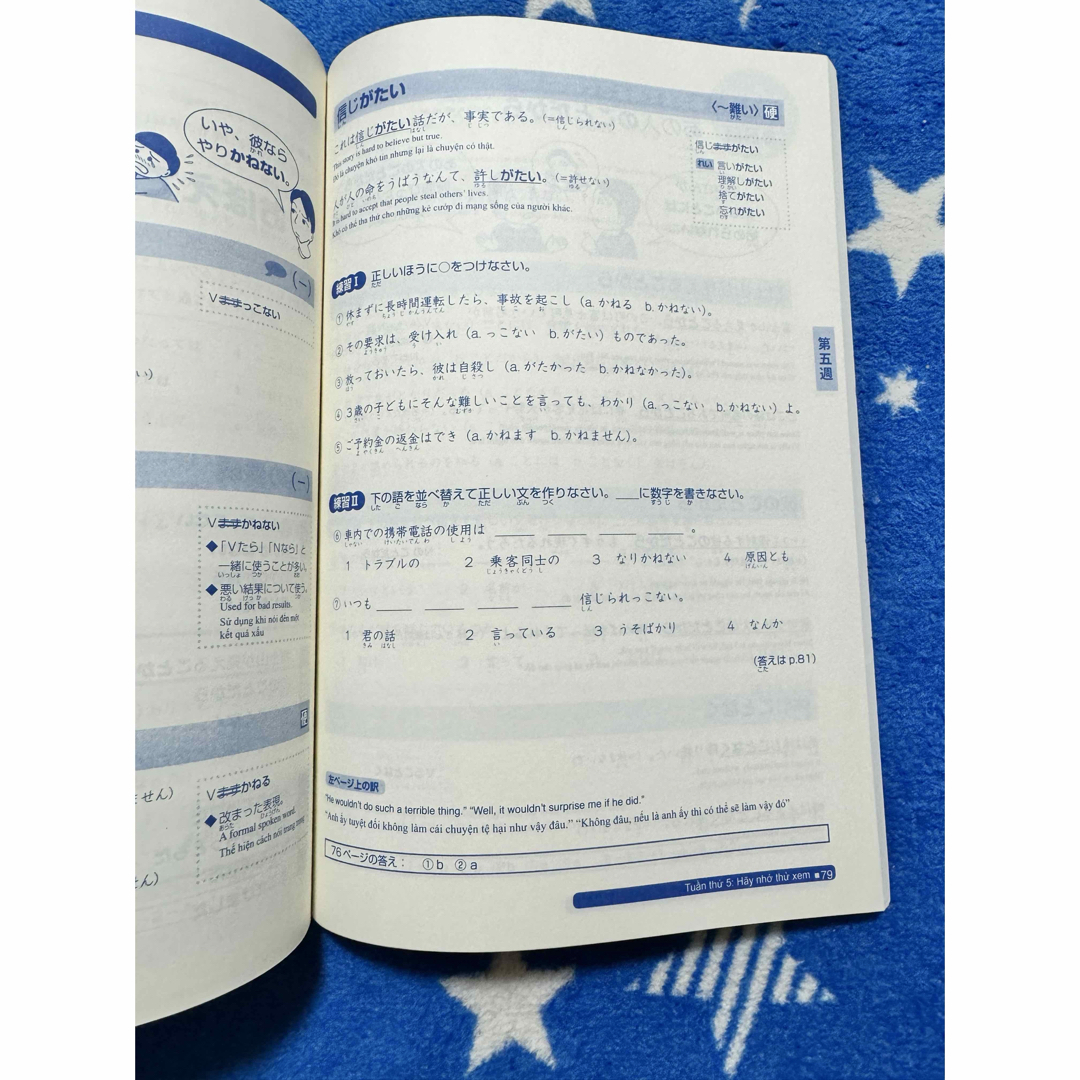 いや、彼なら
やりかねない。
(一)
Vますっこない
(一)
Vますかねない
◆「Vたら」「Nなら」と
一緒に使うことが多い。
◆悪い結果について使う。
Used for bad results.
Sử dụng khi nói đến một
kết quả xấu
硬
Vますかねる
◆改まった表現
A formal spoken word.
Thể hiện cách nói trang trọng
信じがたい
〈〜難い〉硬
これは信じがたい話だが、事実である。(=信じられない)
This story is hard to believe but true.
Đó là chuyện khó tin nhưng lại là chuyện có thật.
人が人の命をうばうなんて、許しがたい。(=許せない)
It is hard to accept that people steal others' lives.
Khó có thể tha thứ cho những kẻ cướp đi mạng sống của người khác.
信じますがたい
れい 言いがたい
理解しがたい
捨てがたい
忘れがたい
練習Ⅰ 正しいほうに○をつけなさい。
①休まずに長時間運転したら、事故を起こし(a.かねる b.かねない)。
②その要求は、受け入れ(a.っこない b.がたい)ものであった。
③放っておいたら、彼は自殺し(a.がたかった b.かねなかった)。
④3歳の子どもにそんな難しいことを言っても、わかり(a.っこない b.かねない)よ。
⑤ご予約金の返金はでき(a.かねます b.かねません)。
練習Ⅱ 下の語を並べ替えて正しい文を作りなさい。___に数字を書きなさい。
⑥車内での携帯電話の使用は ____ ____ ____ ____ 。
1 トラブルの 2 乗客同士の 3 なりかねない 4 原因とも
⑦いつも ____ ____ ____ ____ 信じられっこない。
1 君の話 2 言っている 3 うそばかり 4 なんか
(答えは p.81)
第五週
左ページ上の訳
"He wouldn't do such a terrible thing." "Well, it wouldn't surprise me if he did."
"Anh ấy tuyệt đối không làm cái chuyện tệ hại như vậy đâu." "Không đâu, nếu là anh ấy thì có thể sẽ làm vậy đó"
76ページの答え: ①b ②a
Tuần thứ 5: Hãy nhớ thử xem ■79